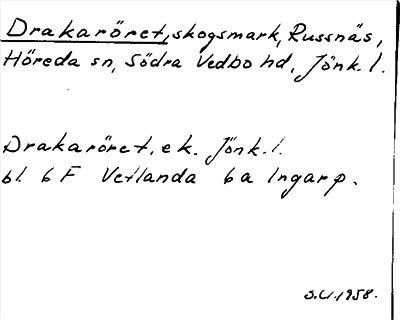 Drakaröret, skogsmark, Russnäs,
Höreda sn, Södra Vedbo hd, Jönk. l.
Drakaröret, ek. Jönk. l.
bl. 6 F Vetlanda 6a Ingarp.
S.U. 1958.